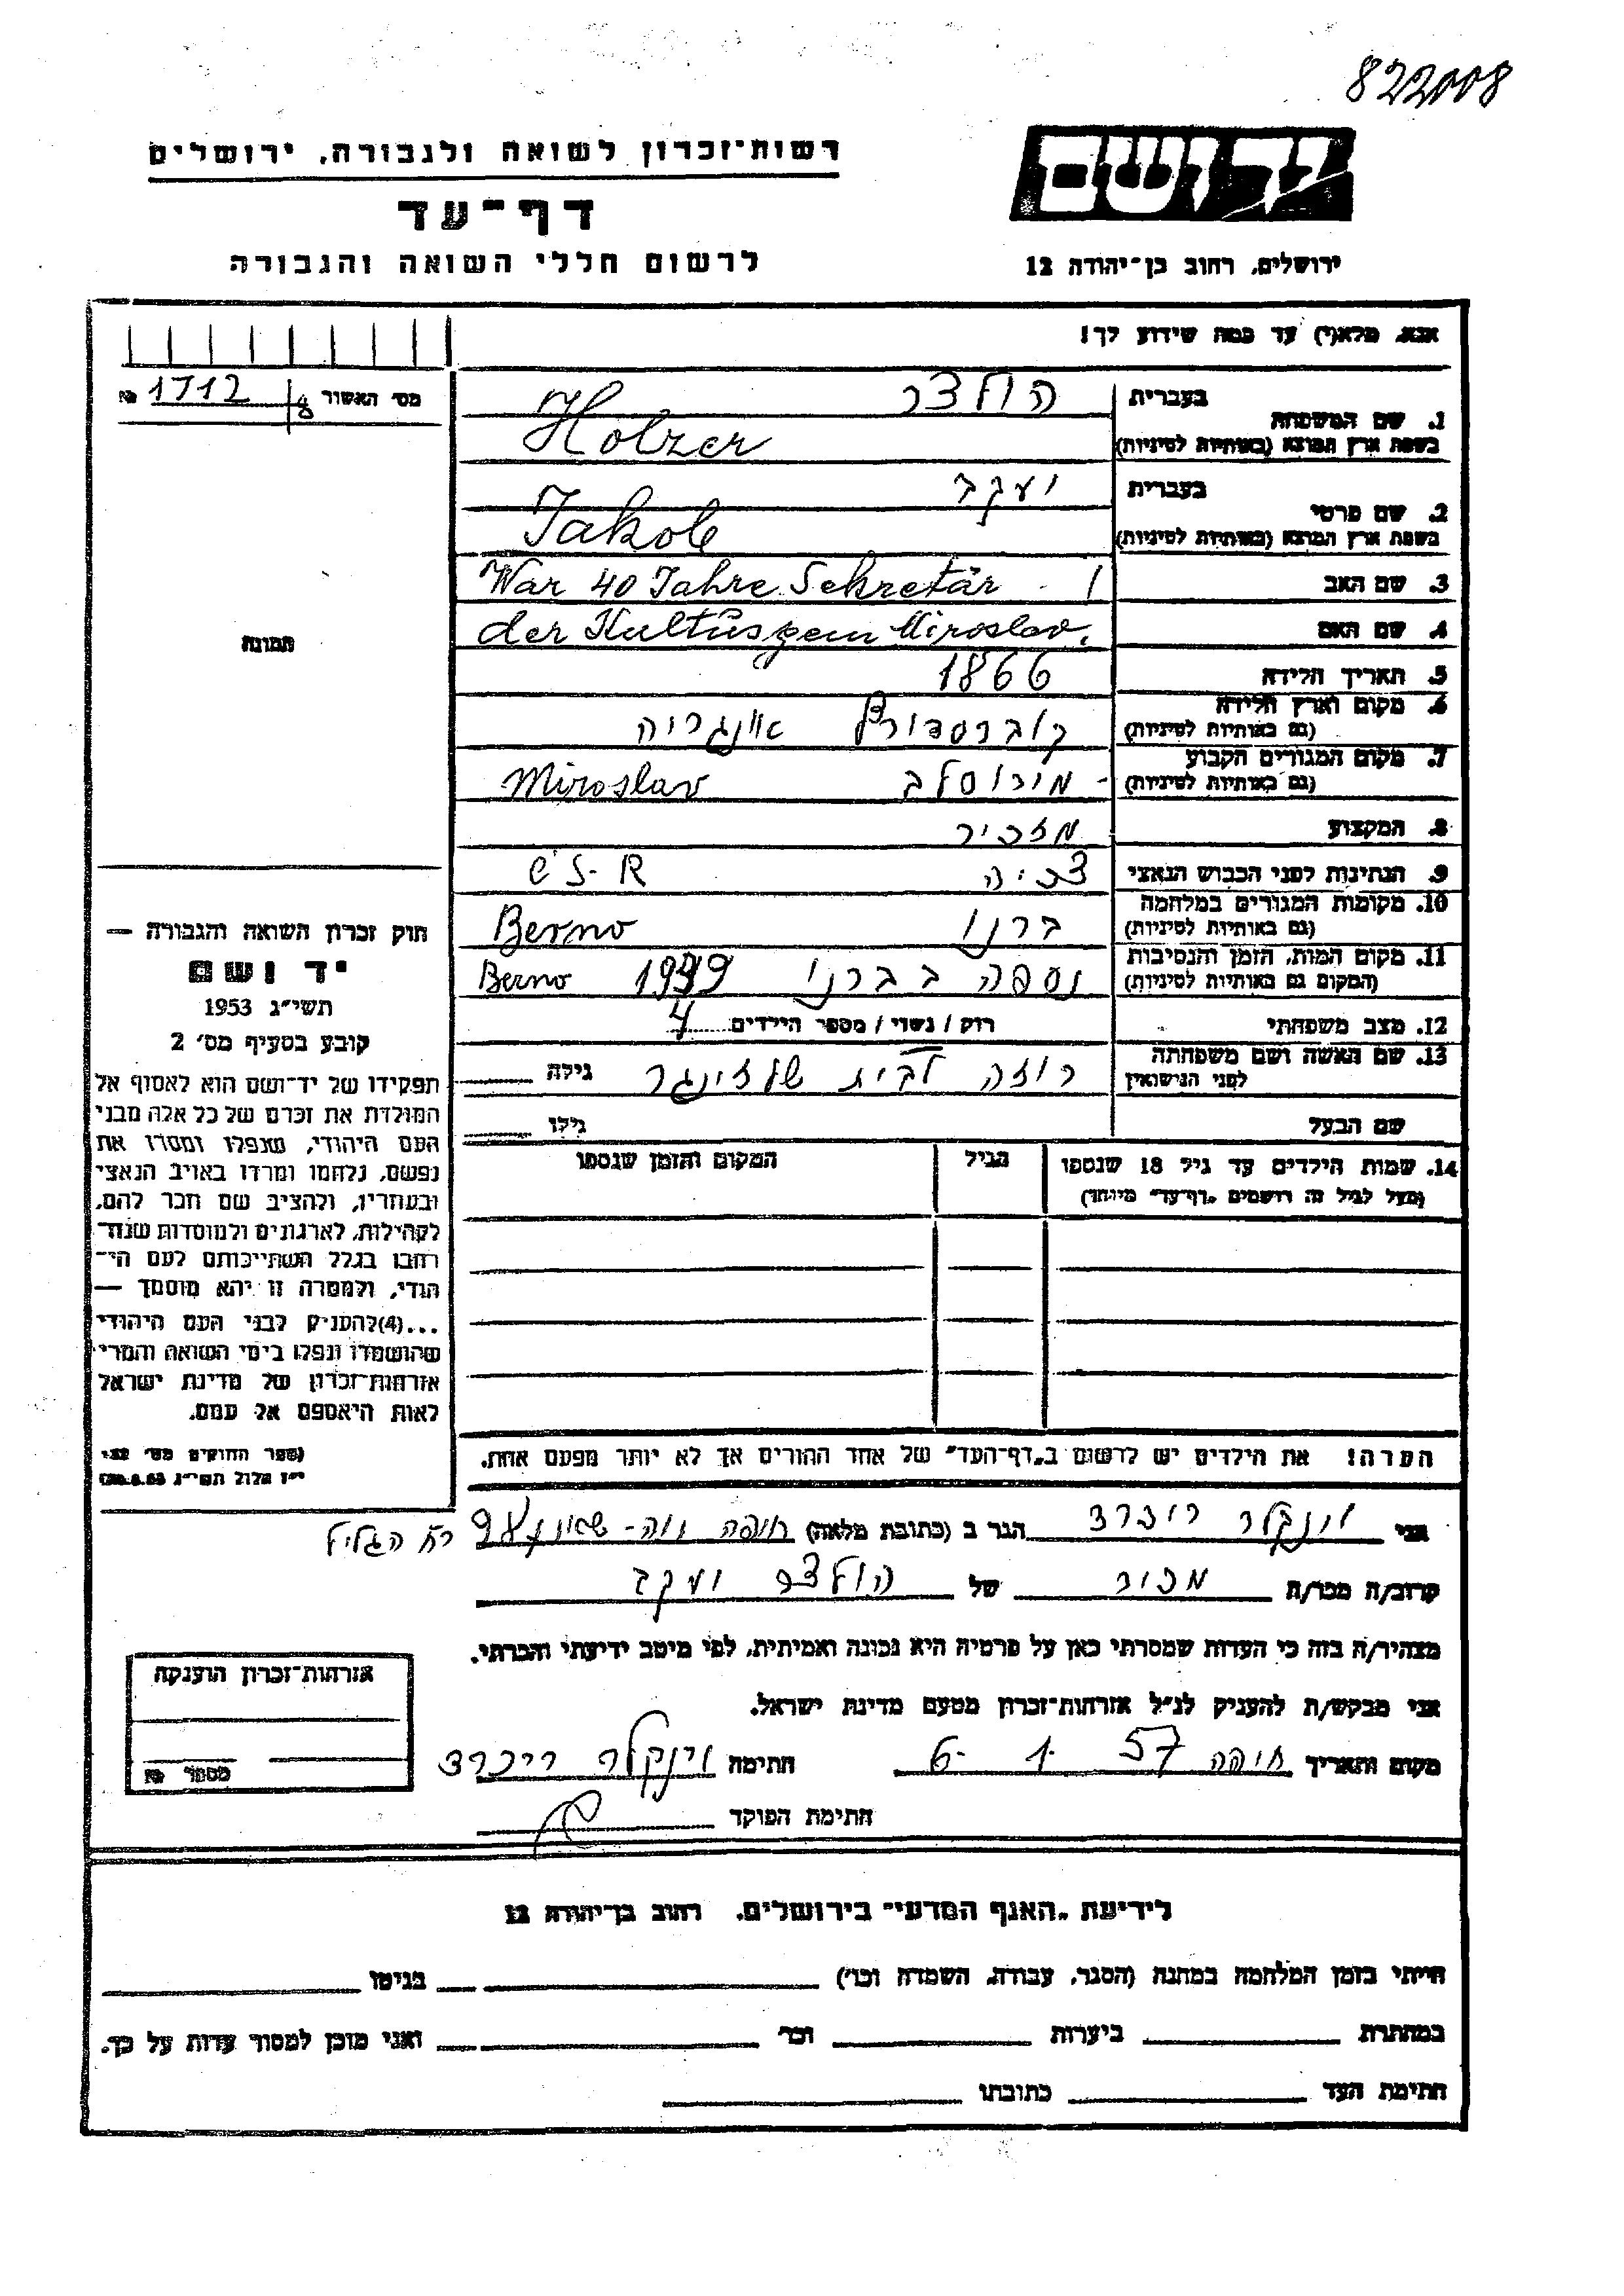 822008
רשות־זכרון לשואה ולגבורה, ירושלים
יד ושם
דף־עד
לרשום חללי השואה והגבורה
ירושלים, רחוב בן־יהודה 12
אנא, מלא(י) עד כמה שידוע לך!
מס' האשור 8/ 1712 №
1. שם המשפחה
בעברית הולצר
בשפת ארץ המוצא (באותיות לטיניות) Holzer
2. שם פרטי
בעברית יעקב
בשפת ארץ המוצא (באותיות לטיניות) Jakob
3. שם האב War 40 Jahre Sekretär
4. שם האם der Kultusgem Miroslav.
5. תאריך הלידה 1866
6. מקום וארץ הלידה
(גם באותיות לטיניות) אונגריה
7. מקום המגורים הקבוע
(גם באותיות לטיניות) מירוסלב Miroslav
8. המקצוע מזכיר
9. הנתינות לפני הכבוש הנאצי צ'כיה Č-S-R
10. מקומות המגורים במלחמה
(גם באותיות לטיניות) ברנו Berno
11. מקום המות, הזמן והנסיבות
(המקום גם באותיות לטיניות) נספה בברנו Berno
12. מצב משפחתי רוק / נשוי / מספר הילדים 4
13. שם האשה ושם משפחתה
לפני הנישואין רוזה לבית שלזינגר גילה
שם הבעל גילו
14. שמות הילדים עד גיל 18 שנספו
(מעל לגיל זה רושמים „דף־עד" מיוחד)
הגיל
המקום והזמן שנספו
הערה! את הילדים יש לרשום ב„דף־העד" של אחד ההורים אך לא יותר מפעם אחת.
תמונה
חוק זכרון השואה והגבורה —
יד ושם
תשי"ג 1953
קובע בסעיף מס' 2
תפקידו של יד־ושם הוא לאסוף אל
המולדת את זכרם של כל אלה מבני
העם היהודי, שנפלו ומסרו את
נפשם, נלחמו ומרדו באויב הנאצי
ובעוזריו, ולהציב שם וזכר להם,
לקהילות, לארגונים ולמוסדות שנח־
רבו בגלל השתייכותם לעם הי־
הודי, ולמטרה זו יהא מוסמך —
...(4) להעניק לבני העם היהודי
שהושמדו ונפלו בימי השואה והמרי
אזרחות־זכרון של מדינת ישראל
לאות היאספם אל עמם.
(ספר החוקים מס' 132
י"ז אלול תשי"ג 28.8.53)
אני וינקלר ריכרד הגר ב (כתובת מלאה) חיפה נוה-שאנן רח הגליל
קרוב/ה מכר/ה מכיר של הולצר יעקב
מצהיר/ה בזה כי העדות שמסרתי כאן על פרטיה היא נכונה ואמיתית, לפי מיטב ידיעתי והכרתי.
אני מבקש/ת להעניק לנ"ל אזרחות־זכרון מטעם מדינת ישראל.
מקום ותאריך חיפה 57 1. 6. חתימה וינקלר ריכרד
חתימת הפוקד
אזרחות־זכרון הוענקה
מספר №
לידיעת „האגף המדעי" בירושלים, רחוב בן־יהודה 12
הייתי בזמן המלחמה במחנה (הסגר, עבודה, השמדה וכו') בגיטו
במחתרת ביערות וכו' ואני מוכן למסור עדות על כך.
חתימת העד כתובתו